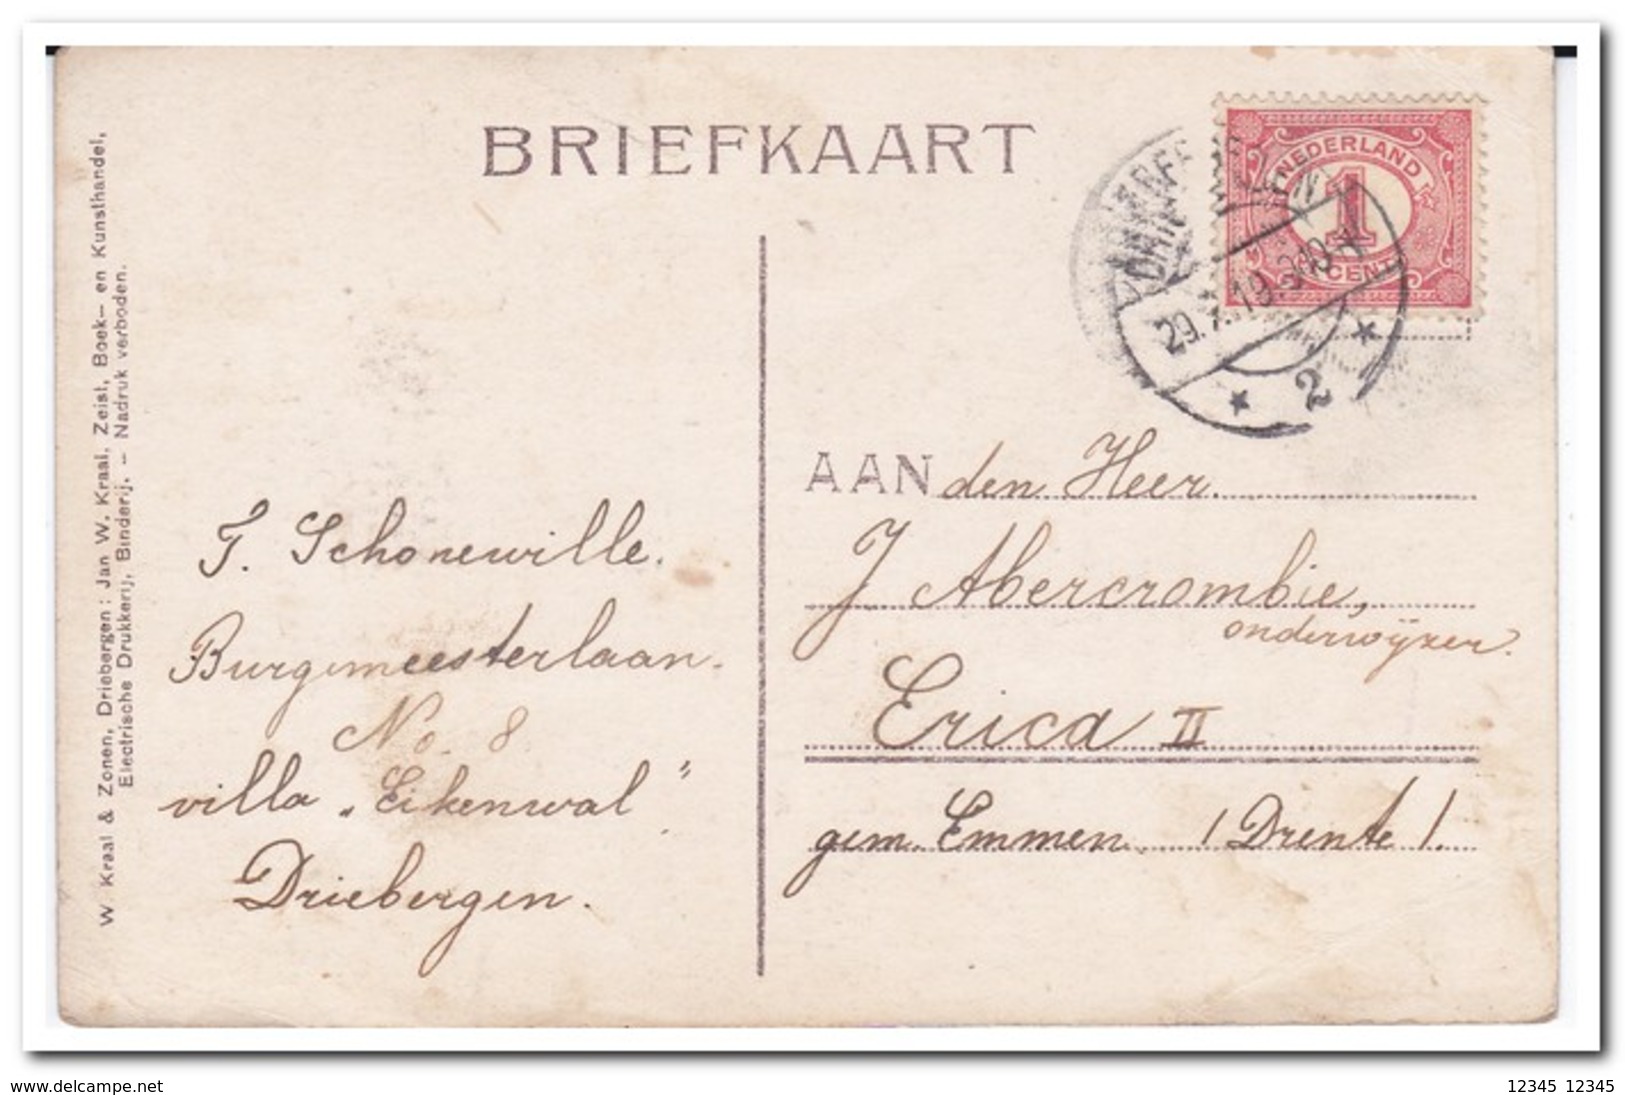 BRIEFKAART
NEDERLAND
1
CENT
2
W Kraal & Zonen, Driebergen: Jan W. Kraal, Zeist, Boek- en Kunsthandel,
Electrische Drukkerij, Binderij. - Nadruk verboden.
J. Schonewille.
Burgemeesterlaan.
No. 8
villa „Eikenwal"
Driebergen.
AAN den Heer
J Abercrombie,
onderwijzer.
Erica II
gem. Emmen. (Drente).
www.delcampe.net
12345 12345